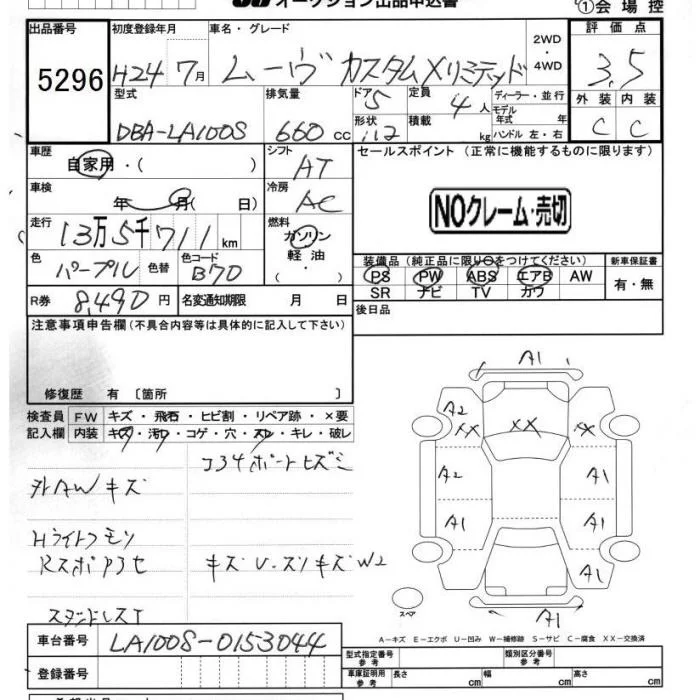 オークション出品申込書
①会場控
出品番号
初度登録年月
車名・グレード
2WD
・
4WD
評価点
5296
H24 7月
ムーヴ カスタムXリミテッド
3.5
型式
排気量
ドア 5
定員 4人
ディーラー・並行
モデル
年式 年
外装 内装
DBA-LA100S
660 cc
形状
積載 kg
ハンドル 左・右
C C
車歴
自家用・( )
シフト
AT
セールスポイント (正常に機能するものに限ります)
車検
年 月( 日)
冷房
AC
NOクレーム・売切
走行
13万5千711km
燃料
ガソリン
軽油
・
( )
装備品(純正品に限り○をつけてください)
新車保証書
色
パープル
色替
色コード
B70
PS PW ABS エアB AW
SR ナビ TV カワ
有・無
R券
8,490円
名変通知期限 月 日
後日品
注意事項申告欄(不具合内容等は具体的に記入して下さい)
修復歴 有〔箇所 〕
検査員
記入欄
FW キズ・飛石・ヒビ割・リペア跡・×要
内装 キズ・汚れ・コゲ・穴・スレ・キレ・破レ
外AWキズ
Hライトクモリ
スタッドレスT
A1
A2
XX
XX
XX
A2
A1
A1
A1
A1
A1
スペア
A−キズ E−エクボ U−凹み W−補修跡 S−サビ C−腐食 XX−交換済
車台番号
LA100S-0153044
登録番号
型式指定番号
参考
類別区分番号
参考
車庫証明用
参考
長さ cm
幅 cm
高さ cm